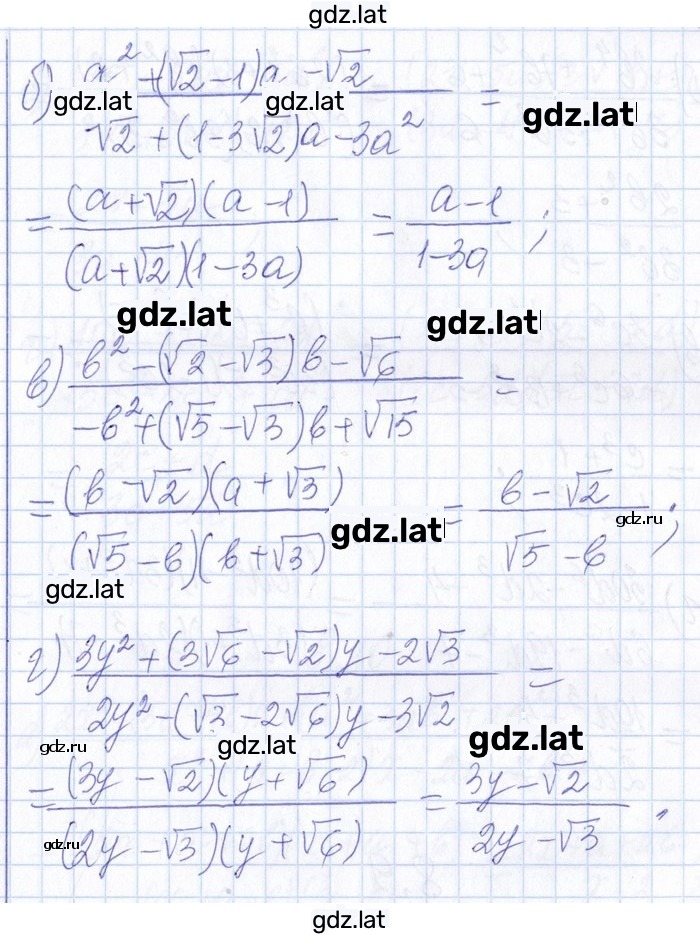 gdz.lat
б) a² + (√2 - 1)a - √2 / √2 + (1 - 3√2)a - 3a² =
gdz.lat gdz.lat gdz.lat
= (a + √2)(a - 1) / (a + √2)(1 - 3a) = a - 1 / 1 - 3a ;
gdz.lat gdz.lat
в) b² - (√2 - √3)b - √6 / -b² + (√5 - √3)b + √15 =
= (b - √2)(a + √3) / (√5 - b)(b + √3) = b - √2 / √5 - b ;
gdz.lat gdz.ru
gdz.lat
г) 3y² + (3√6 - √2)y - 2√3 / 2y² - (√3 - 2√6)y - 3√2 =
gdz.ru gdz.lat gdz.lat
= (3y - √2)(y + √6) / (2y - √3)(y + √6) = 3y - √2 / 2y - √3 .
gdz.ru
gdz.lat